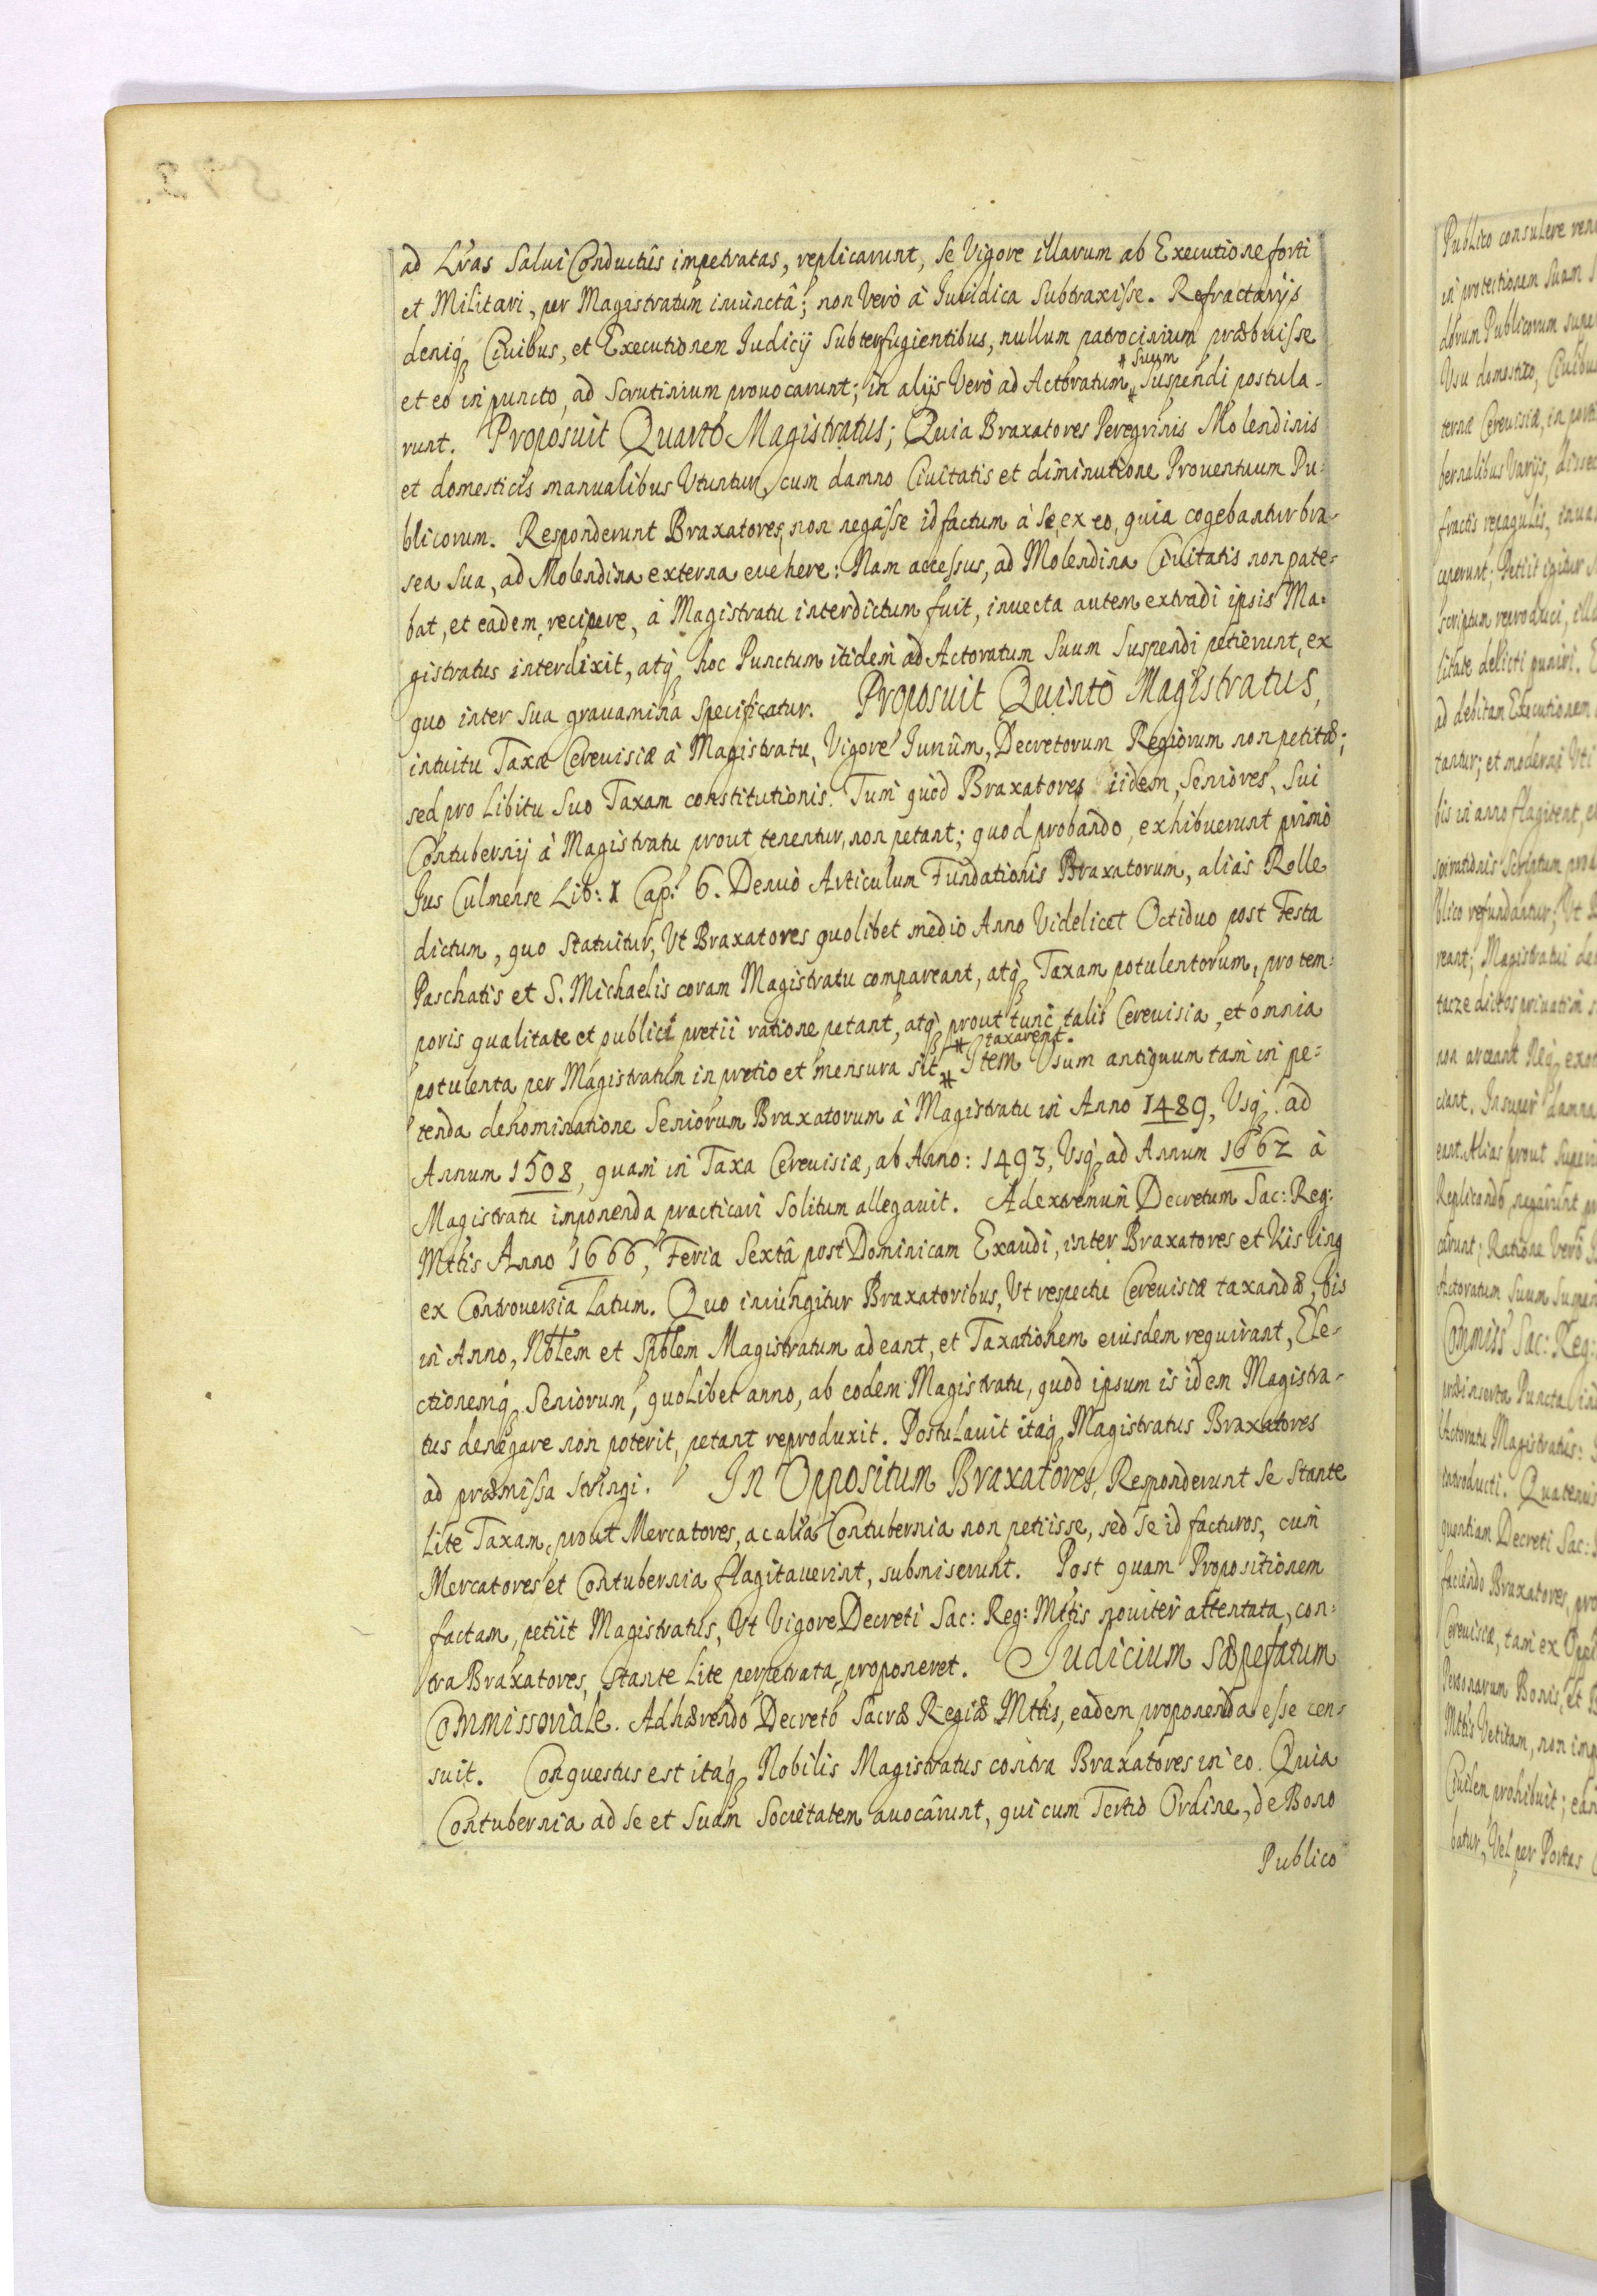 ad Lras Salui Conductûs impetratas, replicarunt, se Vigore illarum ab Executione forti
et Militari, per Magistratum iniunctâ; non Verò à Iuridica subtraxisse. Refractarijs
deniq́ Ciuibus, et Executionem Iudicij subterfugientibus, nullum patrocinium præbuisse
et eò in puncto, ad Scrutinium prouocarunt; in alijs Verò ad Actoratum * suum * Suspendi postula-
runt. Proposuit Quartò Magistratus; Quia Braxatores Peregrinis Molendinis
et domesticis manualibus Utuntur, cum damno Ciuitatis et diminutione Prouentuum Pu-
blicorum. Responderunt Braxatores, non negâsse id factum à se, ex eo, quia cogebantur bra-
sea sua, ad Molendina externa euehere: Nam accessus, ad Molendina Ciuitatis non pate-
bat, et eadem, recipere, à Magistratu interdictum fuit, inuecta autem extradi ipsis Ma-
gistratus interdixit, atq́ hoc Punctum itidem ad Actoratum Suum Suspendi petierunt, ex
quo inter sua grauamina specificatur. Proposuit Quintò Magistratus,
intuitu Taxæ Cereuisiæ à Magistratu, Vigore Iurium, Decretorum Regiorum non petitæ;
sed pro Libitu Suo Taxam constitutionis. Tum quòd Braxatores iidem, Seniores, Sui
Contubernij à Magistratu prout tenentur, non petant; quod probando, exhibuerunt primò
Jus Culmense Lib: I Cap: 6. Denuò Articulum Fundationis Braxatorum, aliàs Rolle
dictum, quo Statuitur, Ut Braxatores quolibet medio Anno Videlicet Octiduo post Festa
Paschatis et S. Michaelis coram Magistratu compareant, atq́ Taxam potulentorum, pro tem-
poris qualitate et publici pretii ratione petant, atq́ prout tunc talis Cereuisia, et omnia
potulenta per Magistratum in pretio et mensura sit * taxarent. * Item Usum antiquum tam in pe-
tenda denominatione Seniorum Braxatorum à Magistratu in Anno 1489, Usq́ ad
Annum 1508, quam in Taxa Cereuisiæ, ab Anno: 1493, Usq́ ad Annum 1662 à
Magistratu imponenda practicari Solitum allegauit. Ad extremum Decretum Sac: Reg:
Mttis Anno 1666, Feria Sextâ post Dominicam Exaudi, inter Braxatores et Kisling
ex Controuersia Latum. Quo iniungitur Braxatoribus, Ut respectu Cereuisiæ taxandæ, bis
in Anno, Nblem et Spblem Magistratum adeant, et Taxationem eiusdem requirant, Ele-
ctionemq́ Seniorum, quolibet anno, ab eodem Magistratu, quòd ipsum is idem Magistra-
tus denegare non poterit, petant reproduxit. Postulauit itaq́ Magistratus Braxatores
ad præmissa stringi. In Oppositum Braxatores, Responderunt Se Stante
Lite Taxam, prout Mercatores, ac alia Contubernia non petiisse, sed se id facturos, cum
Mercatores et Contubernia flagitauerint, submiserunt. Post quam Propositionem
factam, petiit Magistratus, Ut Vigore Decreti Sac: Reg: Mttis nouiter attentata, con-
tra Braxatores, Stante Lite perpetrata proponeret. Judicium Sæpefatum
Commissoriale. Adhærendo Decreto Sacræ Regiæ Mttis, eadem proponenda esse cen-
suit. Conquestus est itaq́ Nobilis Magistratus contra Braxatores in eo. Quia
Contubernia ad se et Suam Societatem auocârunt, qui cum Tertio Ordine, de Bono
Publico
Publico consulere
in protectionem Suam
Usu domestico, Ciuibus
ad debitam Executionem
Actoratum Suum
Actoratu Magistratûs:
faciendo Braxatores,
Personarum Bonis, et